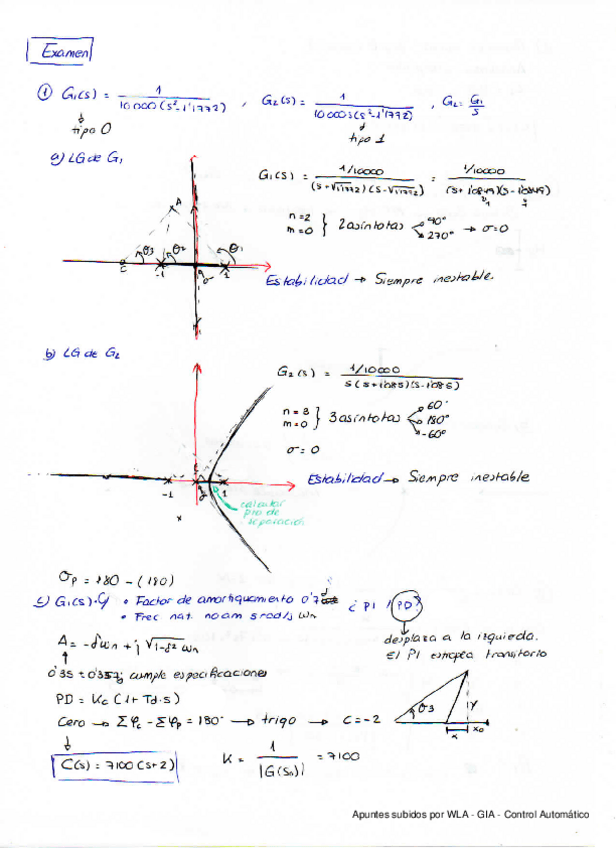 Examen
① G₁(s) = 1 / 10000(s²-1'1772) , G₂(s) = 1 / 10000s(s²-1'1772) , G₂ = G₁/s
tipo 0
tipo 1
a) LG de G₁
G₁(s) = 1/10000 / (s+√1'1772)(s-√1'1772) = 1/10000 / (s+1'0849)(s-1'0849)
A
n=2
m=0 } 2 asíntotas 90° 270° → σ=0
C θ3 θ2 θ1
-1 σ 1
Estabilidad → Siempre inestable.
b) LG de G₂
G₂(s) = 1/10000 / s(s+1'085)(s-1'085)
n=3
m=0 } 3 asíntotas 60° 180° -60°
σ=0
Estabilidad → Siempre inestable
-1 σ 1
calcular
pto de
separación
σp = 180 - (180)
c) G₁(s)·C • Factor de amortiguamiento 0'7 ¿ PI / PD
• Frec nat. no am s rad/s ωn
A = -δωn + j √1-δ² ωn
desplaza a la izquierda.
El PI estropea transitorio
cumple especificaciones
PD = Kc (1+Td·s)
Cero → Σφc - Σφp = 180° → trigo → C=-2
θ3 Y x x₀
C(s) = 7100(s+2)
K = 1 / |G(s₀)| = 7100
Apuntes subidos por WLA - GIA - Control Automático